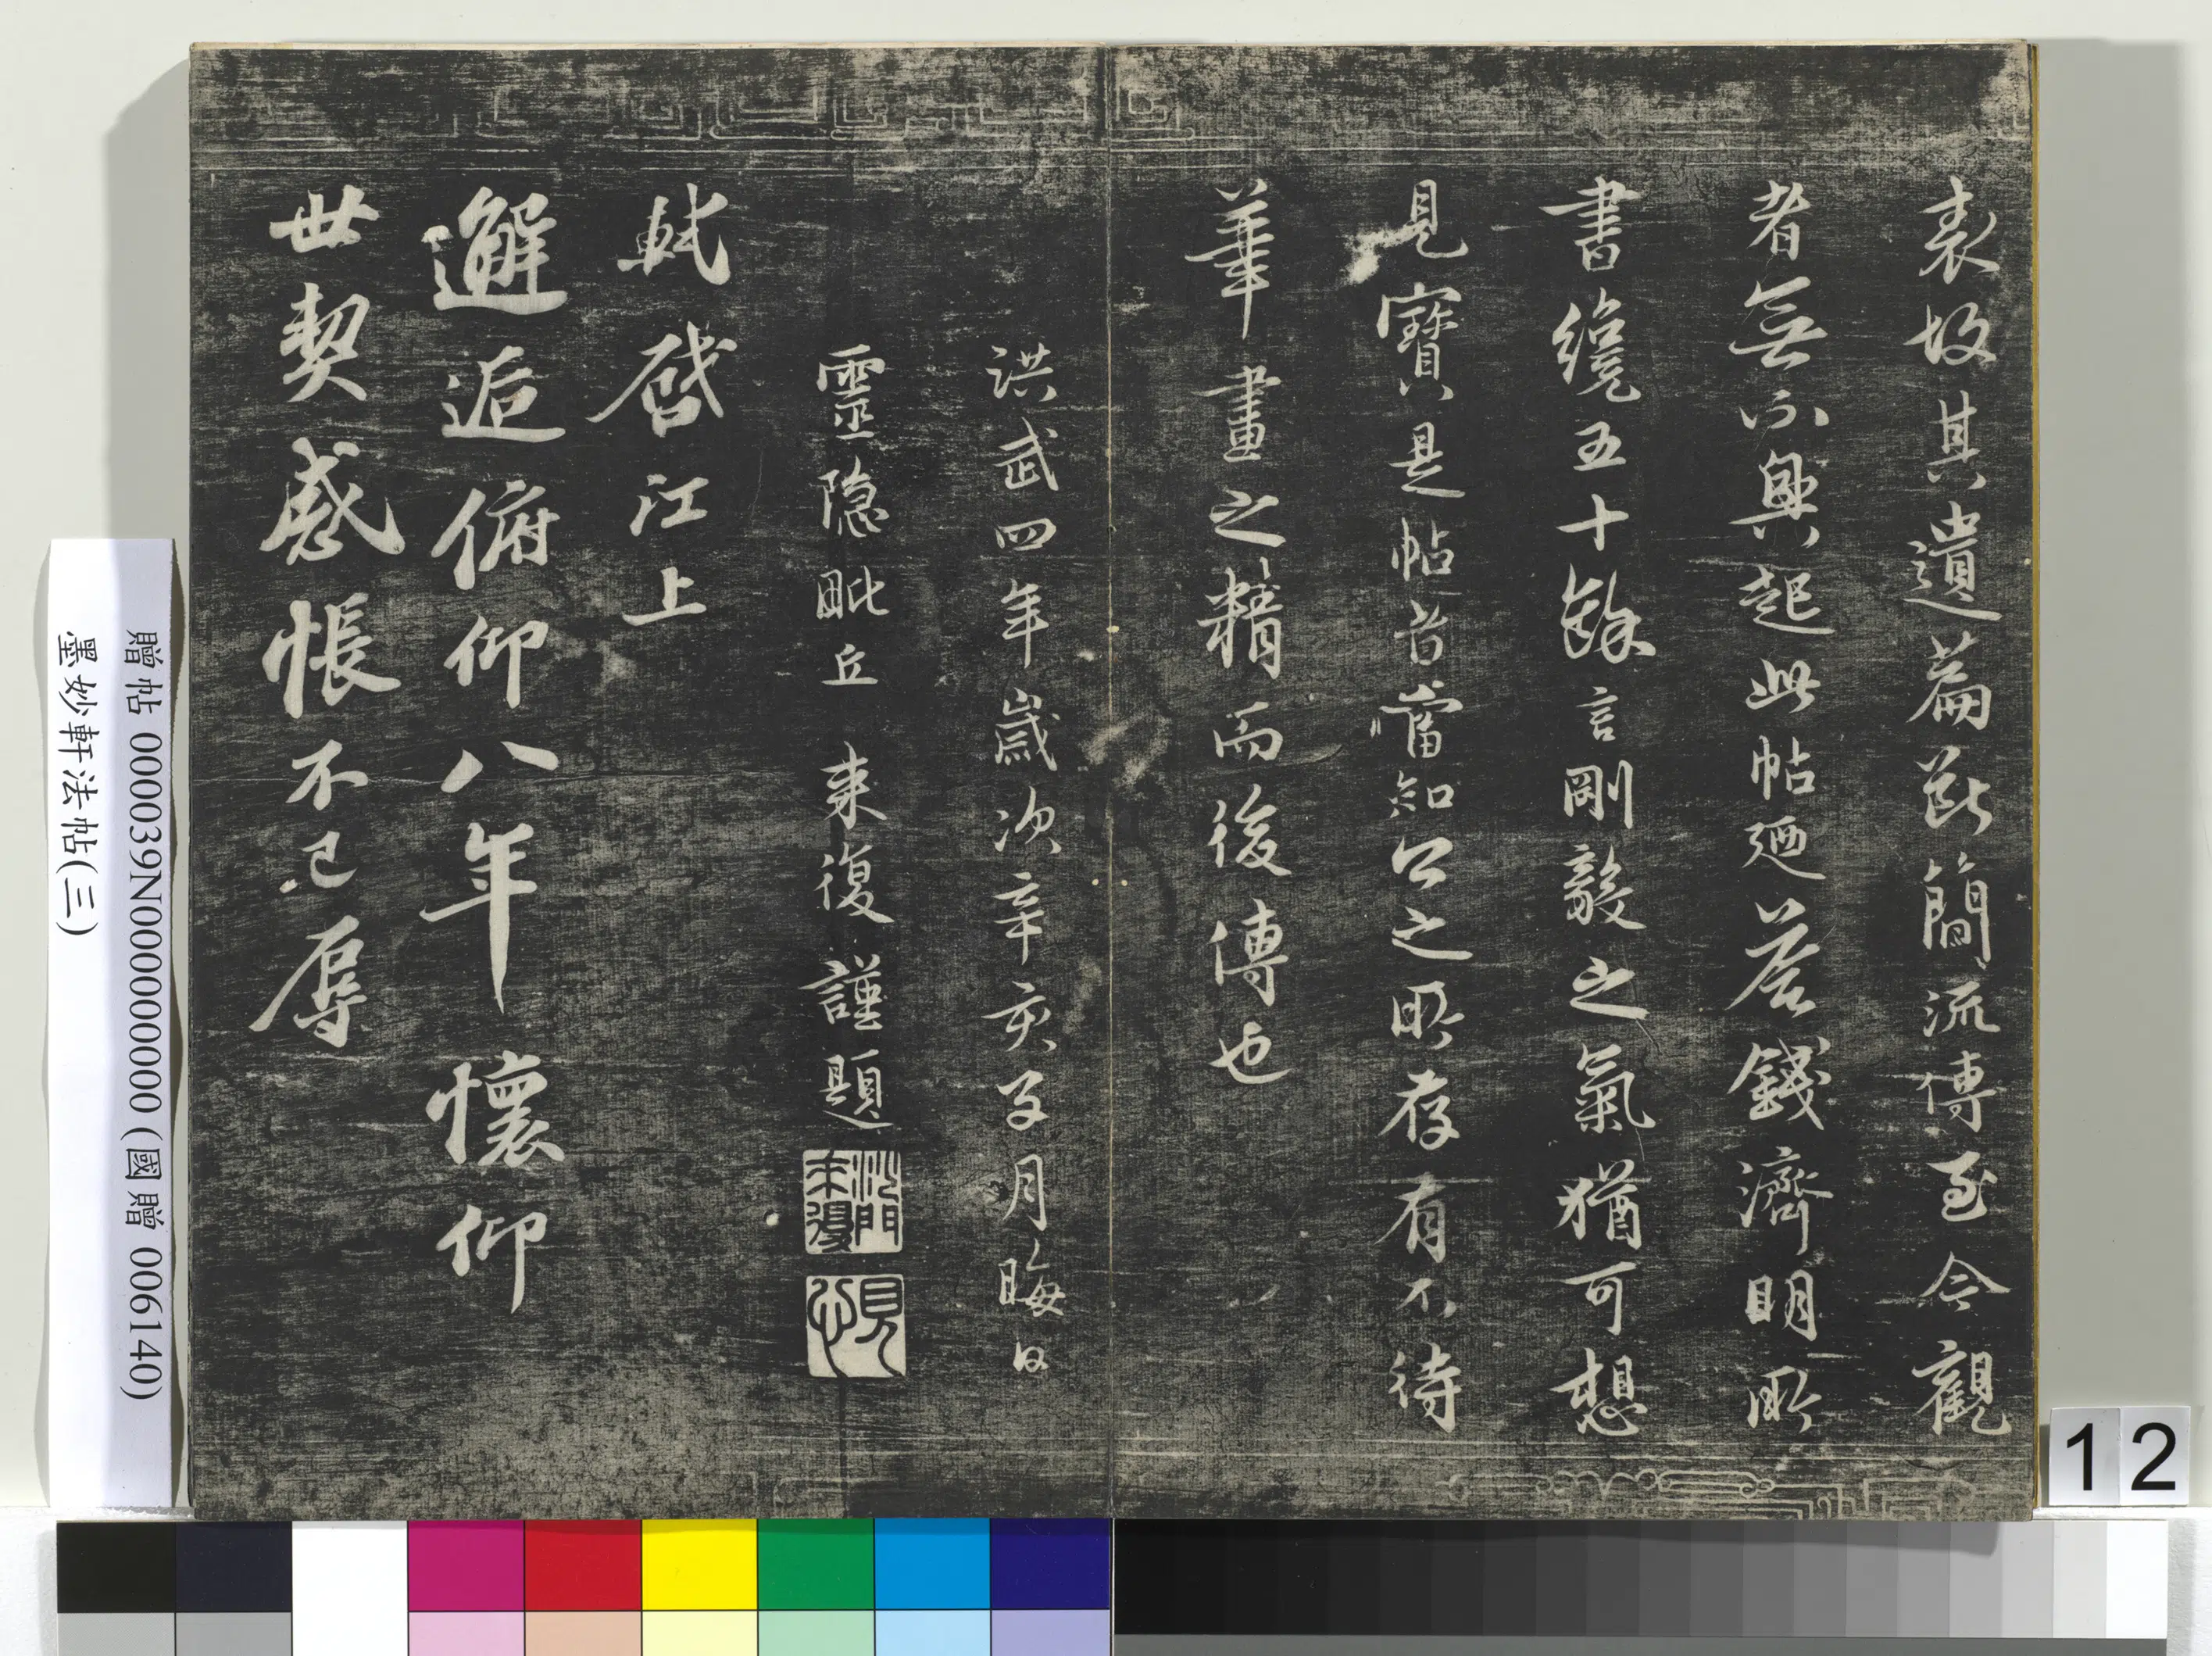 表故其遺篇斷簡流傳至今觀
者無不興起此帖廼答錢濟明所
書纔五十餘言剛毅之氣猶可想
見寶是帖者當知公之所存有不待
華畫之精而後傳也
洪武四年歲次辛亥子月晦日
靈隱毗丘來復謹題
沙門來復
見心
軾啓江上
邂逅俯仰八年懷仰
世契感悵不已辱
贈帖 000039N000000000 (國贈 006140)
墨妙軒法帖(三)
12